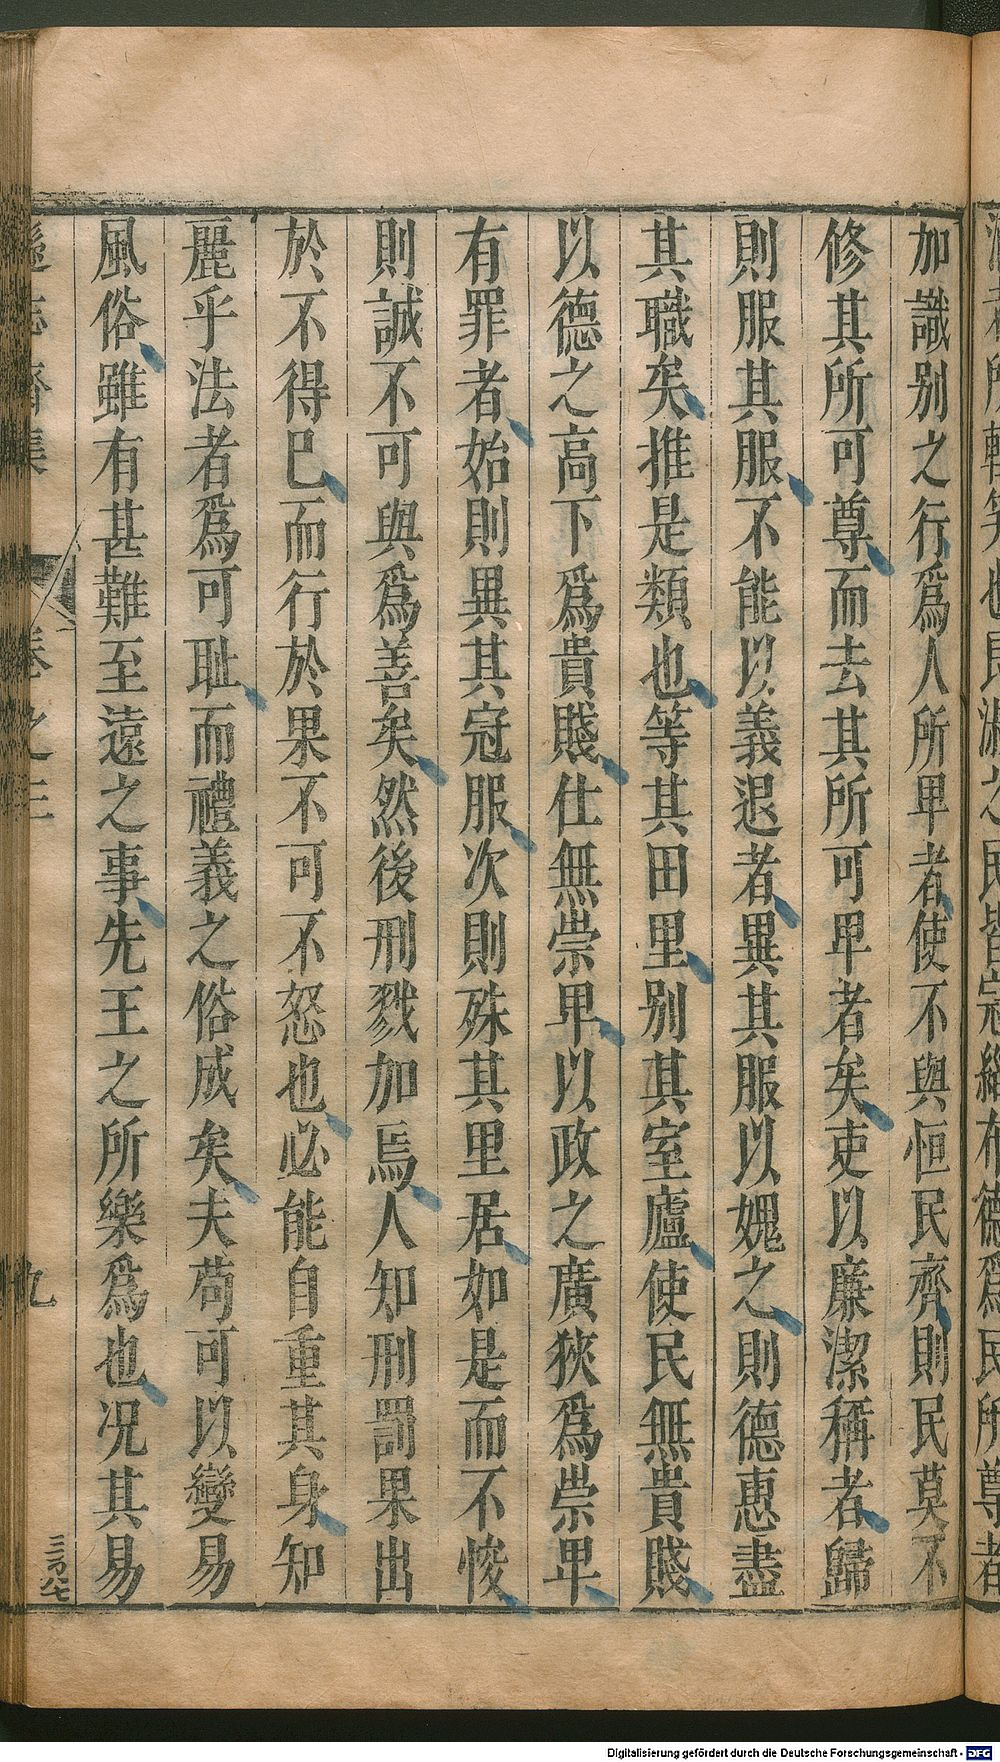 加識别之行爲人所卑者使不與恒民齊則民莫不
修其所可尊而去其所可卑者矣吏以廉潔稱者歸
則服其服不能以義退者異其服以媿之則德惠盡
其職矣推是類也等其田里别其室廬使民無貴賤
以德之高下爲貴賤仕無崇卑以政之廣狹爲崇卑
有罪者始則異其冠服次則殊其里居如是而不悛
則誠不可與爲善矣然後刑戮加焉人知刑罰果出
於不得已而行於果不可不怒也必能自重其身知
麗乎法者爲可耻而禮義之俗成矣夫苟可以變易
風俗雖有甚難至遠之事先王之所樂爲也况其易
遜志齋集
卷之三
九
Digitalisierung gefördert durch die Deutsche Forschungsgemeinschaft - DFG